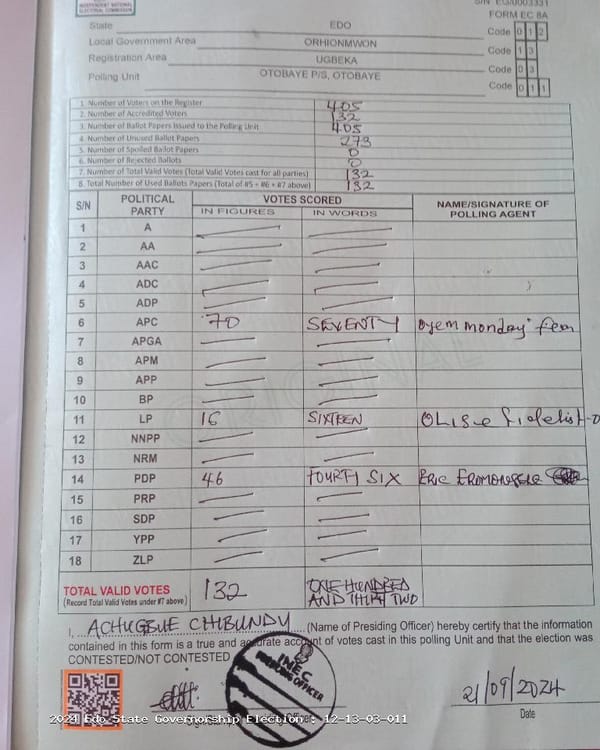 INDEPENDENT NATIONAL
ELECTORAL COMMISSION
FORM EC 8A
State EDO Code 0 1 2
Local Government Area ORHIONMWON Code 1 3
Registration Area UGBEKA Code 0 3
Polling Unit OTOBAYE P/S, OTOBAYE Code 0 1 1
1. Number of Voters on the Register 405
2. Number of Accredited Voters 132
3. Number of Ballot Papers Issued to the Polling Unit 405
4. Number of Unused Ballot Papers 273
5. Number of Spoiled Ballot Papers 0
6. Number of Rejected Ballots 0
7. Number of Total Valid Votes (Total Valid Votes cast for all parties) 132
8. Total Number of Used Ballots Papers (Total of #5 + #6 + #7 above) 132
S/N POLITICAL PARTY VOTES SCORED NAME/SIGNATURE OF POLLING AGENT
IN FIGURES IN WORDS
1 A
2 AA
3 AAC
4 ADC
5 ADP
6 APC 70 SEVENTY Oyem monday
7 APGA
8 APM
9 APP
10 BP
11 LP 16 SIXTEEN
12 NNPP
13 NRM
14 PDP 46 FOURTY SIX ERIC
15 PRP
16 SDP
17 YPP
18 ZLP
TOTAL VALID VOTES 132 ONE HUNDRED
(Record Total Valid Votes under #7 above) AND THIRTY TWO
I, ACHUGBUE CHIBUNDY (Name of Presiding Officer) hereby certify that the information
contained in this form is a true and accurate account of votes cast in this polling Unit and that the election was
CONTESTED/NOT CONTESTED
INEC
PRESIDING OFFICER
21/09/2024
Date
2024 Edo State Governorship Election:: 12-13-03-011